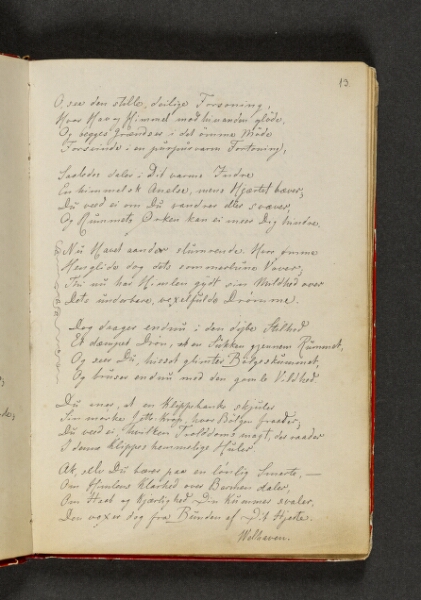 13.
O see den stille, deilige Forsoning,
Hvor Hav og Himmel mod hinanden gløde,
Og begges Grændser i det ømme Møde
Forsvinde i en purpurvarm Fortoning,
Saaledes daler i Dit varme Indre
En himmelsk Anelse, mens Hjertet bæver;
Du veed ei om Du vandrer eller svæver,
Og Rummets Ørken kan ei meer Dig hindre.
Nu Havet aander slumrende. Hvor ømme
Henglide dog dets sommerlune Vover;
Thi nu har Himlen gydt sin Mildhed over
Dets underbare, vexelfulde Drømme.
Dog drager endnu i den dybe Stilhed
Et dæmpet Drøn, som et Sukken gjennem Rummet,
Og seer Du, hisset glimter Bølgeskummet,
Og bruser endnu med den gamle Vildhed.
Du veed, at en Klippebanke skjules
Sin mørke hvor Bølgen fraader;
Du veed ei, hvilken Trolddoms magt, der raader
I denne Klippes hemmelige Huler.
Ak, selv Du bærer paa en lønlig Smerte, —
Om Himlens Klarhed over Barmen daler,
Om Haab og Kjærlighed Din Kummer svaler,
Den voxer dog fra Bunden af Dit Hjerte.
Welhaven.